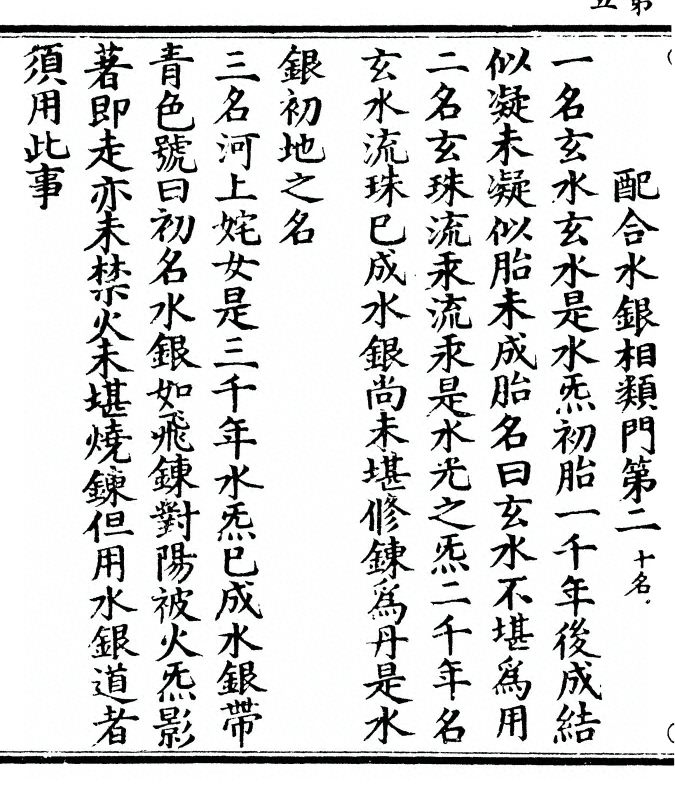 配合水銀相類門第二十名
一名玄水玄水是水炁初胎一千年後成結
似凝未凝似胎未成胎名曰玄水不堪爲用
二名玄珠流汞流汞是水光之炁二千年名
玄水流珠巳成水銀尚未堪修鍊爲丹是水
銀初地之名
三名河上姹女是三千年水炁巳成水銀帶
青色號曰初名水銀如飛鍊對陽被火炁影
著即走亦未禁火未堪燒鍊但用水銀道者
須用此事